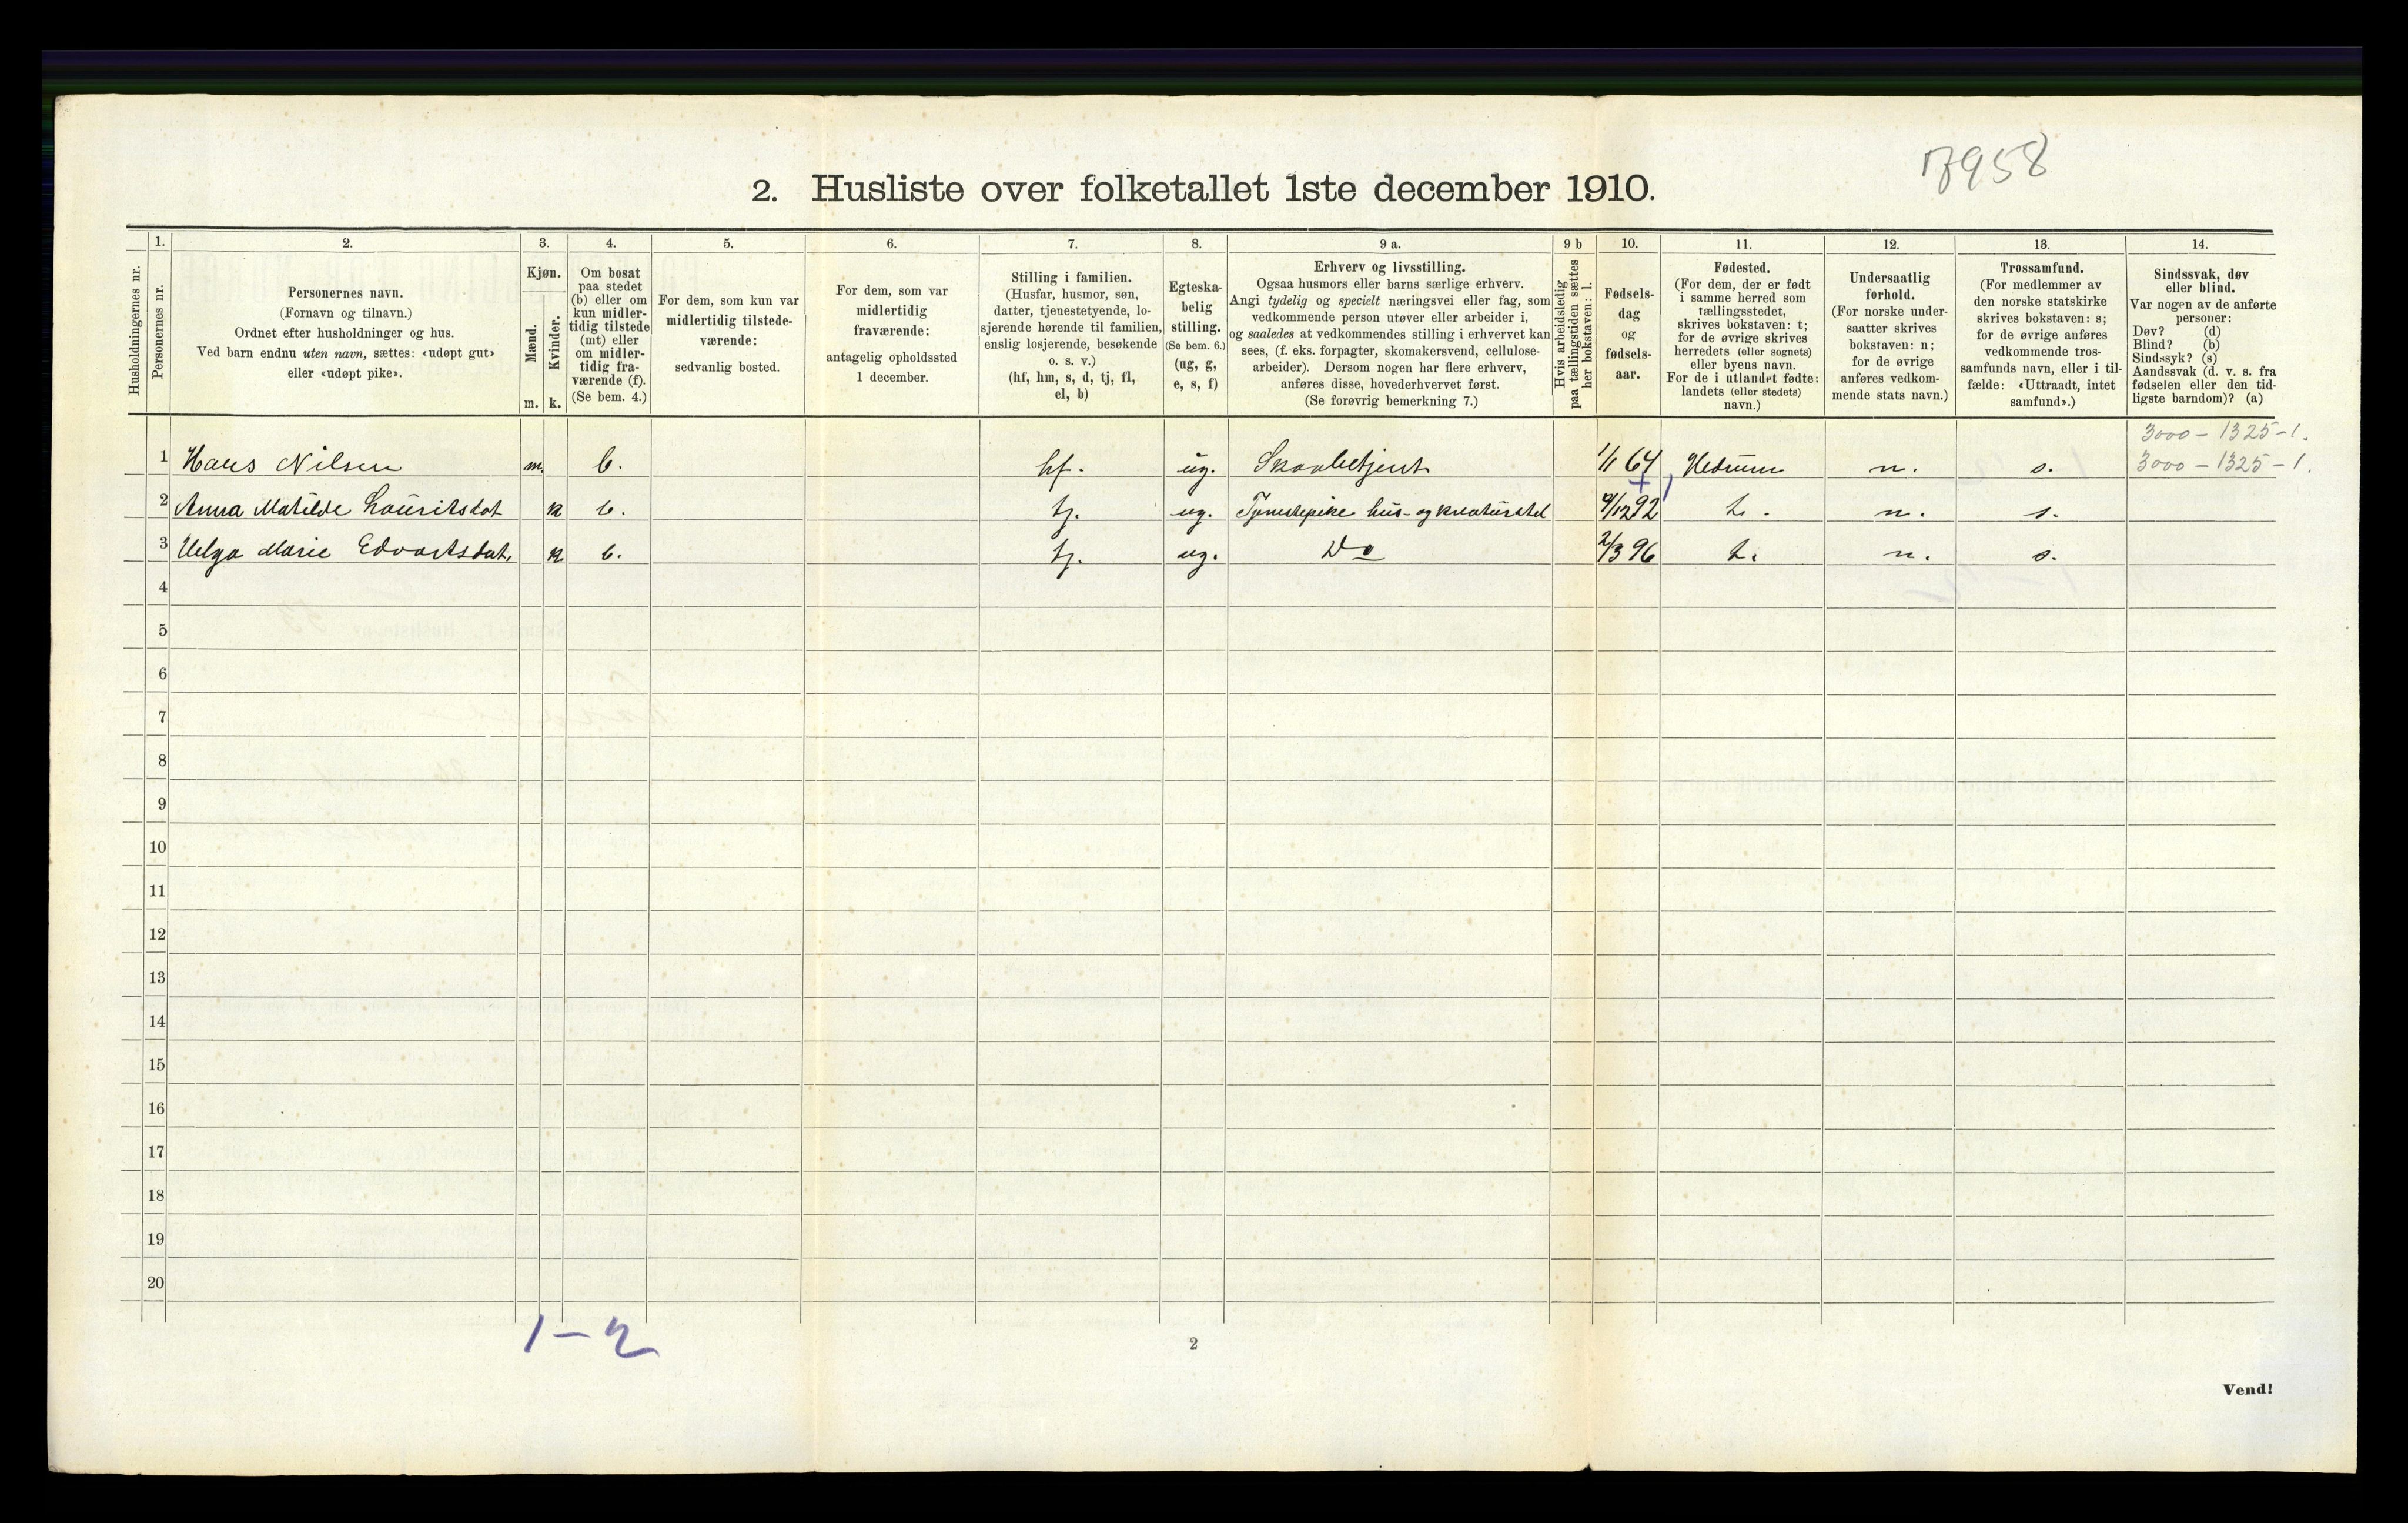 7958
2. Husliste over folketallet 1ste december 1910.
Husholdningernes nr.
1.
Personernes nr.
2.
Personernes navn.
(Fornavn og tilnavn.)
Ordnet efter husholdninger og hus.
Ved barn endnu uten navn, sættes: «udøpt gut»
eller «udøpt pike».
3.
Kjøn.
Mænd.
m.
Kvinder.
k.
4.
Om bosat
paa stedet
(b) eller om
kun midler-
tidig tilstede
(mt) eller
om midler-
tidig fra-
værende (f).
(Se bem. 4.)
5.
For dem, som kun var
midlertidig tilstede-
værende:
sedvanlig bosted.
6.
For dem, som var
midlertidig
fraværende:
antagelig opholdssted
1 december.
7.
Stilling i familien.
(Husfar, husmor, søn,
datter, tjenestetyende, lo-
sjerende hørende til familien,
enslig losjerende, besøkende
o. s. v.)
(hf, hm, s, d, tj, fl,
el, b)
8.
Egteska-
belig
stilling.
(Se bem. 6.)
(ug, g,
e, s, f)
9 a.
Erhverv og livsstilling.
Ogsaa husmors eller barns særlige erhverv.
Angi tydelig og specielt næringsvei eller fag, som
vedkommende person utøver eller arbeider i,
og saaledes at vedkommendes stilling i erhvervet kan
sees, (f. eks. forpagter, skomakersvend, cellulose-
arbeider). Dersom nogen har flere erhverv,
anføres disse, hovederhvervet først.
(Se forøvrig bemerkning 7.)
9 b
Hvis arbeidsledig
paa tællingstiden sættes
her bokstaven: l.
10.
Fødsels-
dag
og
fødsels-
aar.
11.
Fødested.
(For dem, der er født
i samme herred som
tællingsstedet,
skrives bokstaven: t;
for de øvrige skrives
herredets (eller sognets)
eller byens navn.
For de i utlandet fødte:
landets (eller stedets)
navn.)
12.
Undersaatlig
forhold.
(For norske under-
saatter skrives
bokstaven: n;
for de øvrige
anføres vedkom-
mende stats navn.)
13.
Trossamfund.
(For medlemmer av
den norske statskirke
skrives bokstaven: s;
for de øvrige anføres
vedkommende tros-
samfunds navn, eller i til-
fælde: «Uttraadt, intet
samfund».)
14.
Sindssvak, døv
eller blind.
Var nogen av de anførte
personer:
Døv? (d)
Blind? (b)
Sindssyk? (s)
Aandssvak (d. v. s. fra
fødselen eller den tid-
ligste barndom)? (a)
3000 - 1325 - 1.
1 Hans Nilsen m. b. hf. ug. Skovbetjent 1/1 64 Hedrum n. s. 3000 - 1325 - 1.
2 Anna Matilde Louritsdat k b. tj. ug. Tjenestepike hus- og kreaturstel 9/12 92 t. n. s.
3 Helga Marie Edvartsdat. k b. tj. ug. Do 2/3 96 t. n. s.
4
5
6
7
8
9
10
11
12
13
14
15
16
17
18
19
20
1 - 2
2
Vend!